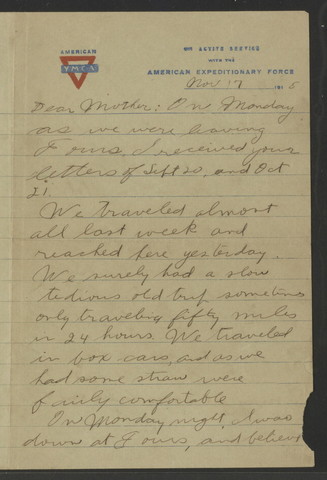 AMERICAN
YMCA
ON ACTIVE SERVICE
WITH THE
AMERICAN EXPEDITIONARY FORCE
Nov 17 191
Dear Mother: On Monday
as we were leaving
Tours, I received your
letters of Sept 20, and Oct
21.
We traveled almost
all last week and
reached here yesterday.
We surely had a slow
tedious old trip sometimes
only traveling fifty miles
in 24 hours. We traveled
in box cars, and as we
had some straw were
fairly comfortable
On Monday night, I was
down at Tours, and believe